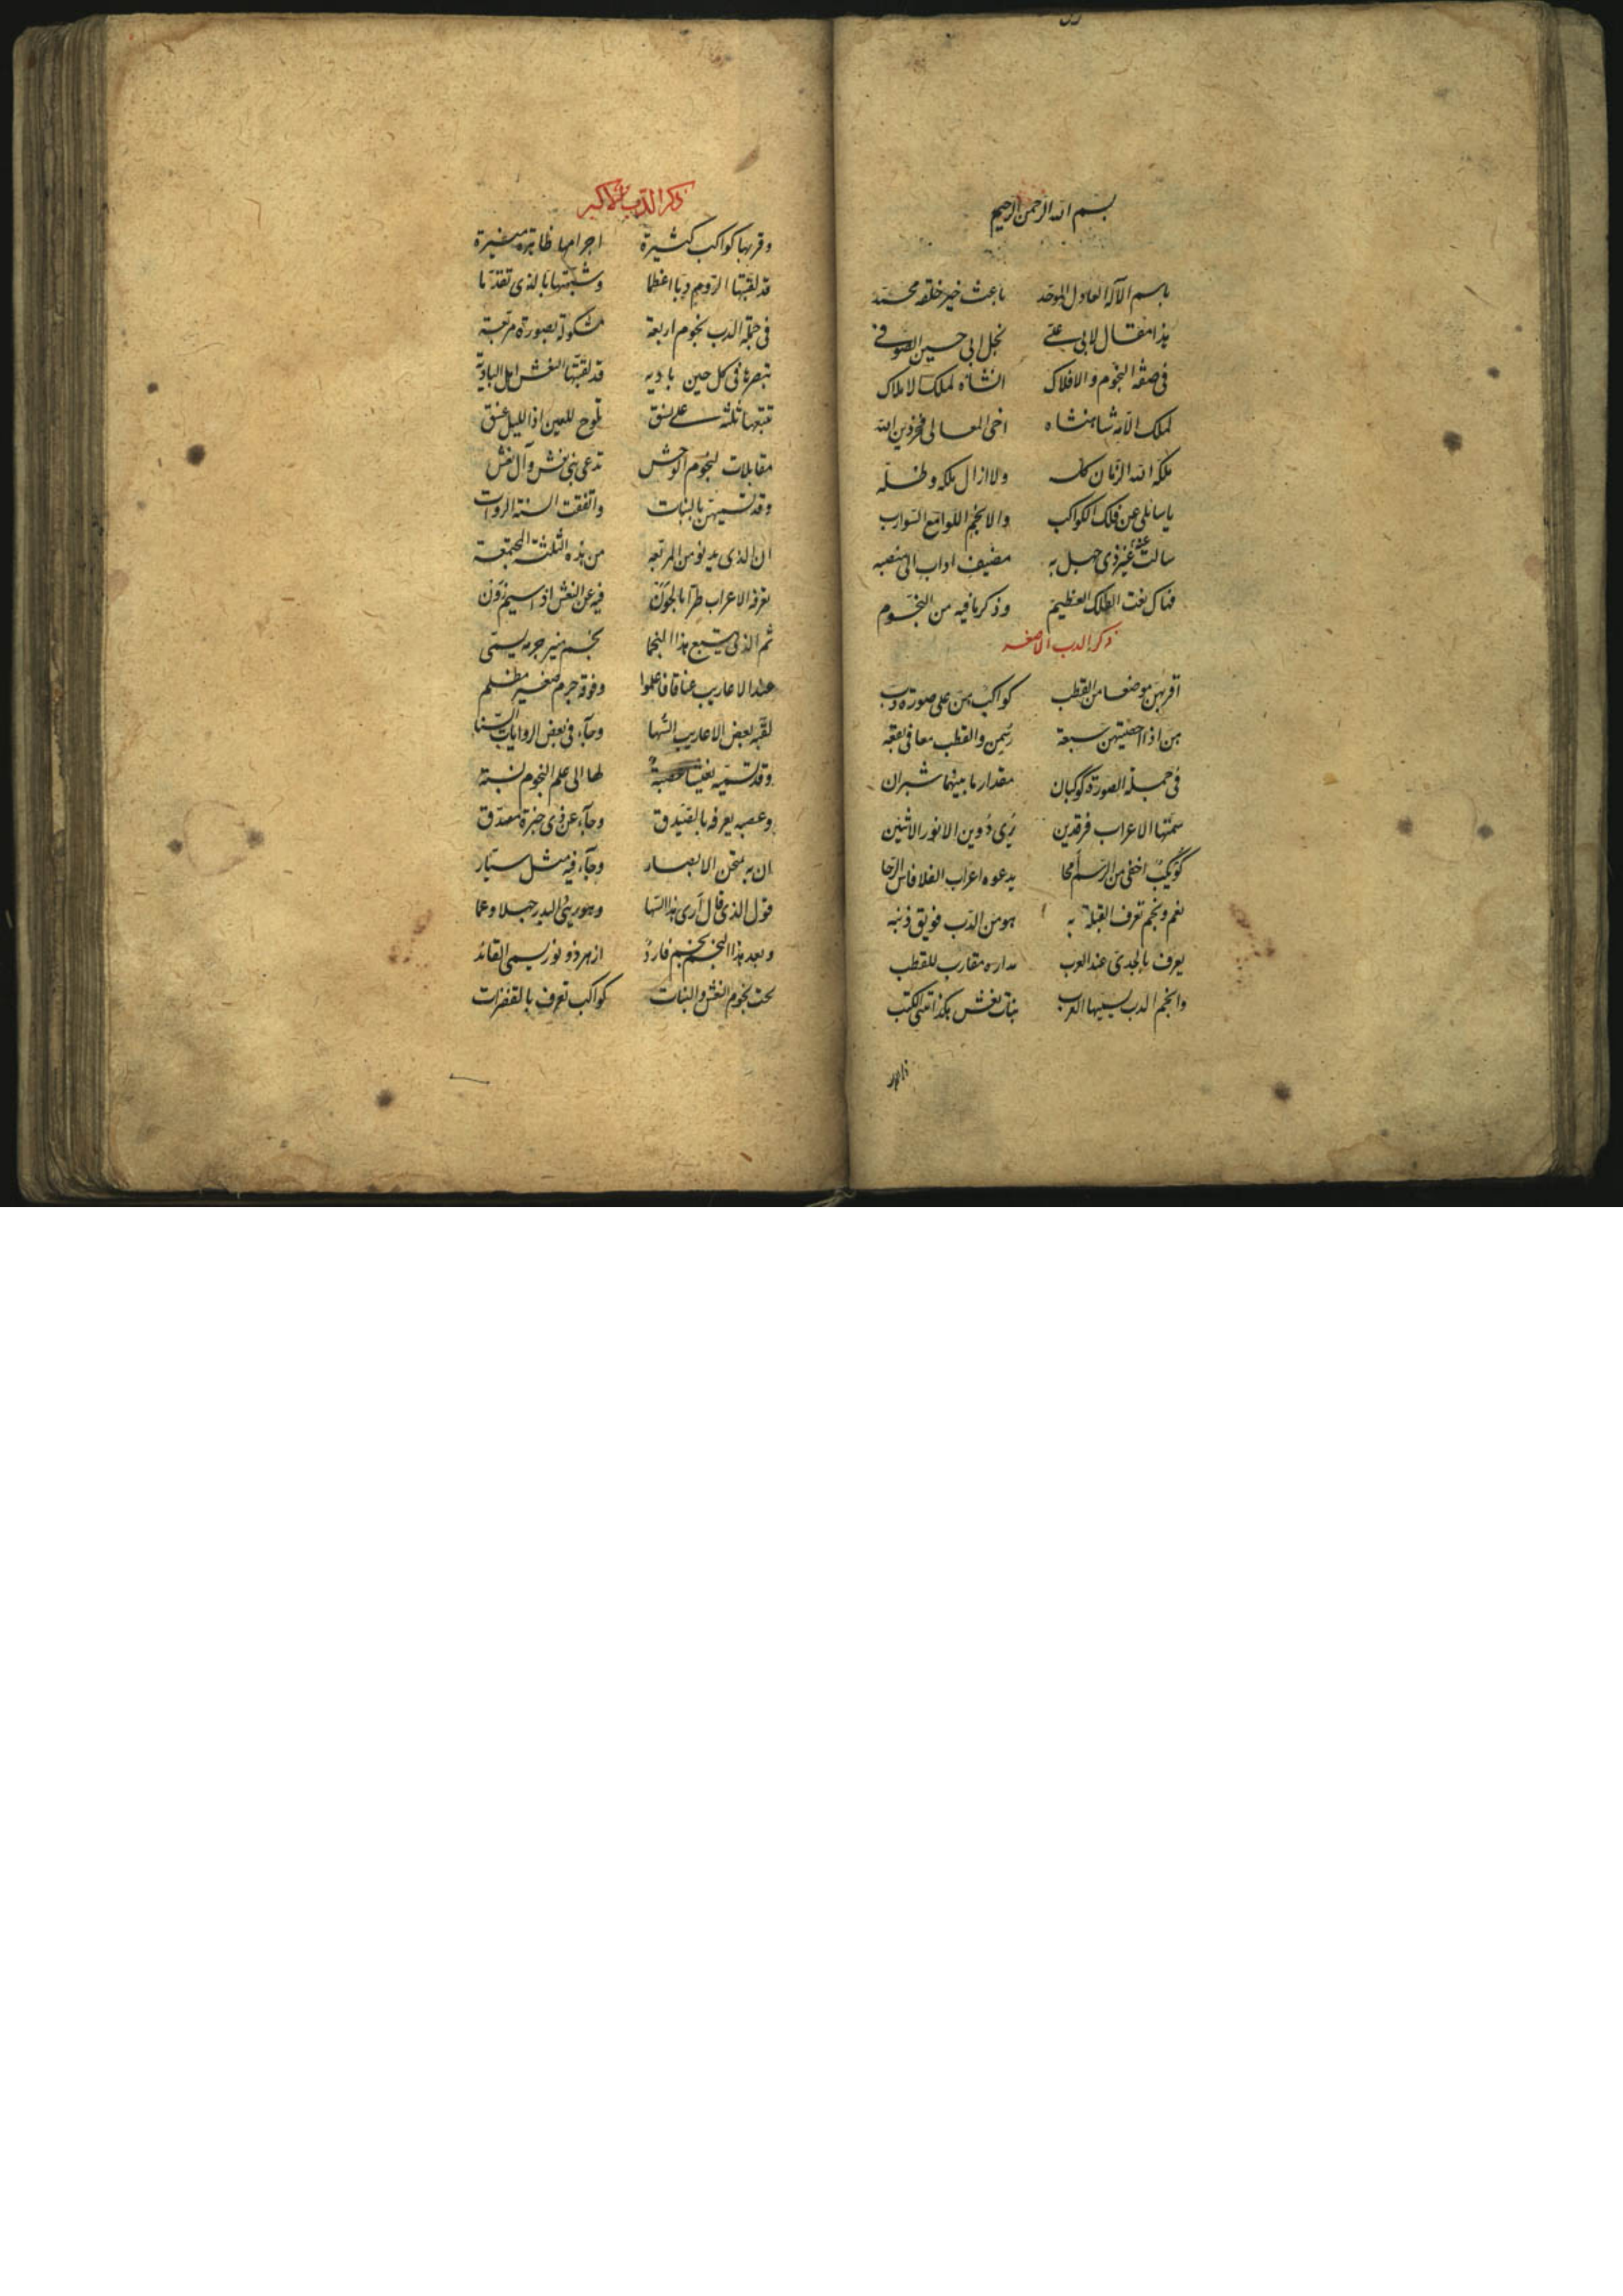 بسم الله الرحمن الرحيم
باسم الآله العادل الموحد باعث خير خلقه محمد
هذا مقال لابي علي نجل ابي حسين الصوفي
في صفة النجوم والافلاك انشاه لملك الاملاك
لملك الانه شاهنشاه اخي المعالي فخر دين الله
ملكه الله الزمان كله ولا ازال ملكه وظله
يا سائلي عن فلك الكواكب والانجم اللوامع السوارب
سالت عنه غير ذي جهل به مضيف اداب الى منصبه
فهاك نعت الفلك العظيم وذكر ما فيه من النجوم
ذكر الدب الاصغر
اقربهن موضعا من القطب كواكب هن على صورة دب
هن اذا احصيتهن سبعة رسمن والقطب معا في بقعه
في جملة الصورة كوكبان مقدار ما بينهما شبران
سمتها الاعراب فرقدين يرى دوين الانور الاثنين
كويكب اخفى من الرسم امحا يدعوه اعراب الفلا فاس الرحا
نعم ونجم تعرف القبلة به هو من الدب فويق ذنبه
يعرف بالجدي عند العرب مداره مقارب للقطب
وانجم الدب يسميها العرب بنات نعش هكذا تتلى الكتب
ذكر الدب الاكبر
وقربها كواكب كثيرة اجرامها ظاهرة منيرة
قد لقبتها الروم دبا اعظما وشبهتها بالذي تقدما
في جملة الدب نجوم اربعة مشكولة بصورة مربعة
تبصرها في كل حين باديه قد لقبتها النعش اهل البادية
تتبعها ثلثة على نسق تلوح للعين اذا الليل غسق
مقابلات لنجوم الوحش تدعى بني نعش وآل نعش
وقد تسميهن بالبنات واتفقت السنة الروات
ان الذي يدنو من المربعه من هذه الثلثة المجتمعة
يعرفه الاعراب طرا بالجون فيه عن النعش اذا سيم زون
ثم الذي يتبع هذا النجما نجم منير جرمه يسمى
عند الاعاريب عناقا فاعلموا وفوقه جرم صغير مظلم
لقبه بعض الاعاريب السها وجاء في بعض الروايات الستا
وقد تسميه نعيشا عصبة لها الى علم النجوم نسبة
وعصبه يعرفه بالصيدق وجاء عن ذي خبرة مصدق
ان به تمتحن الابصار وجاء فيه مثل سيار
قول الذي قال أرى هذا السها وهو يرى البدر جهلا وعما
وبعد هذا النجم نجم فارد ازهر ذو نور يسمى القائد
تحت نجوم النعش والبنات كواكب تعرف بالقفزات